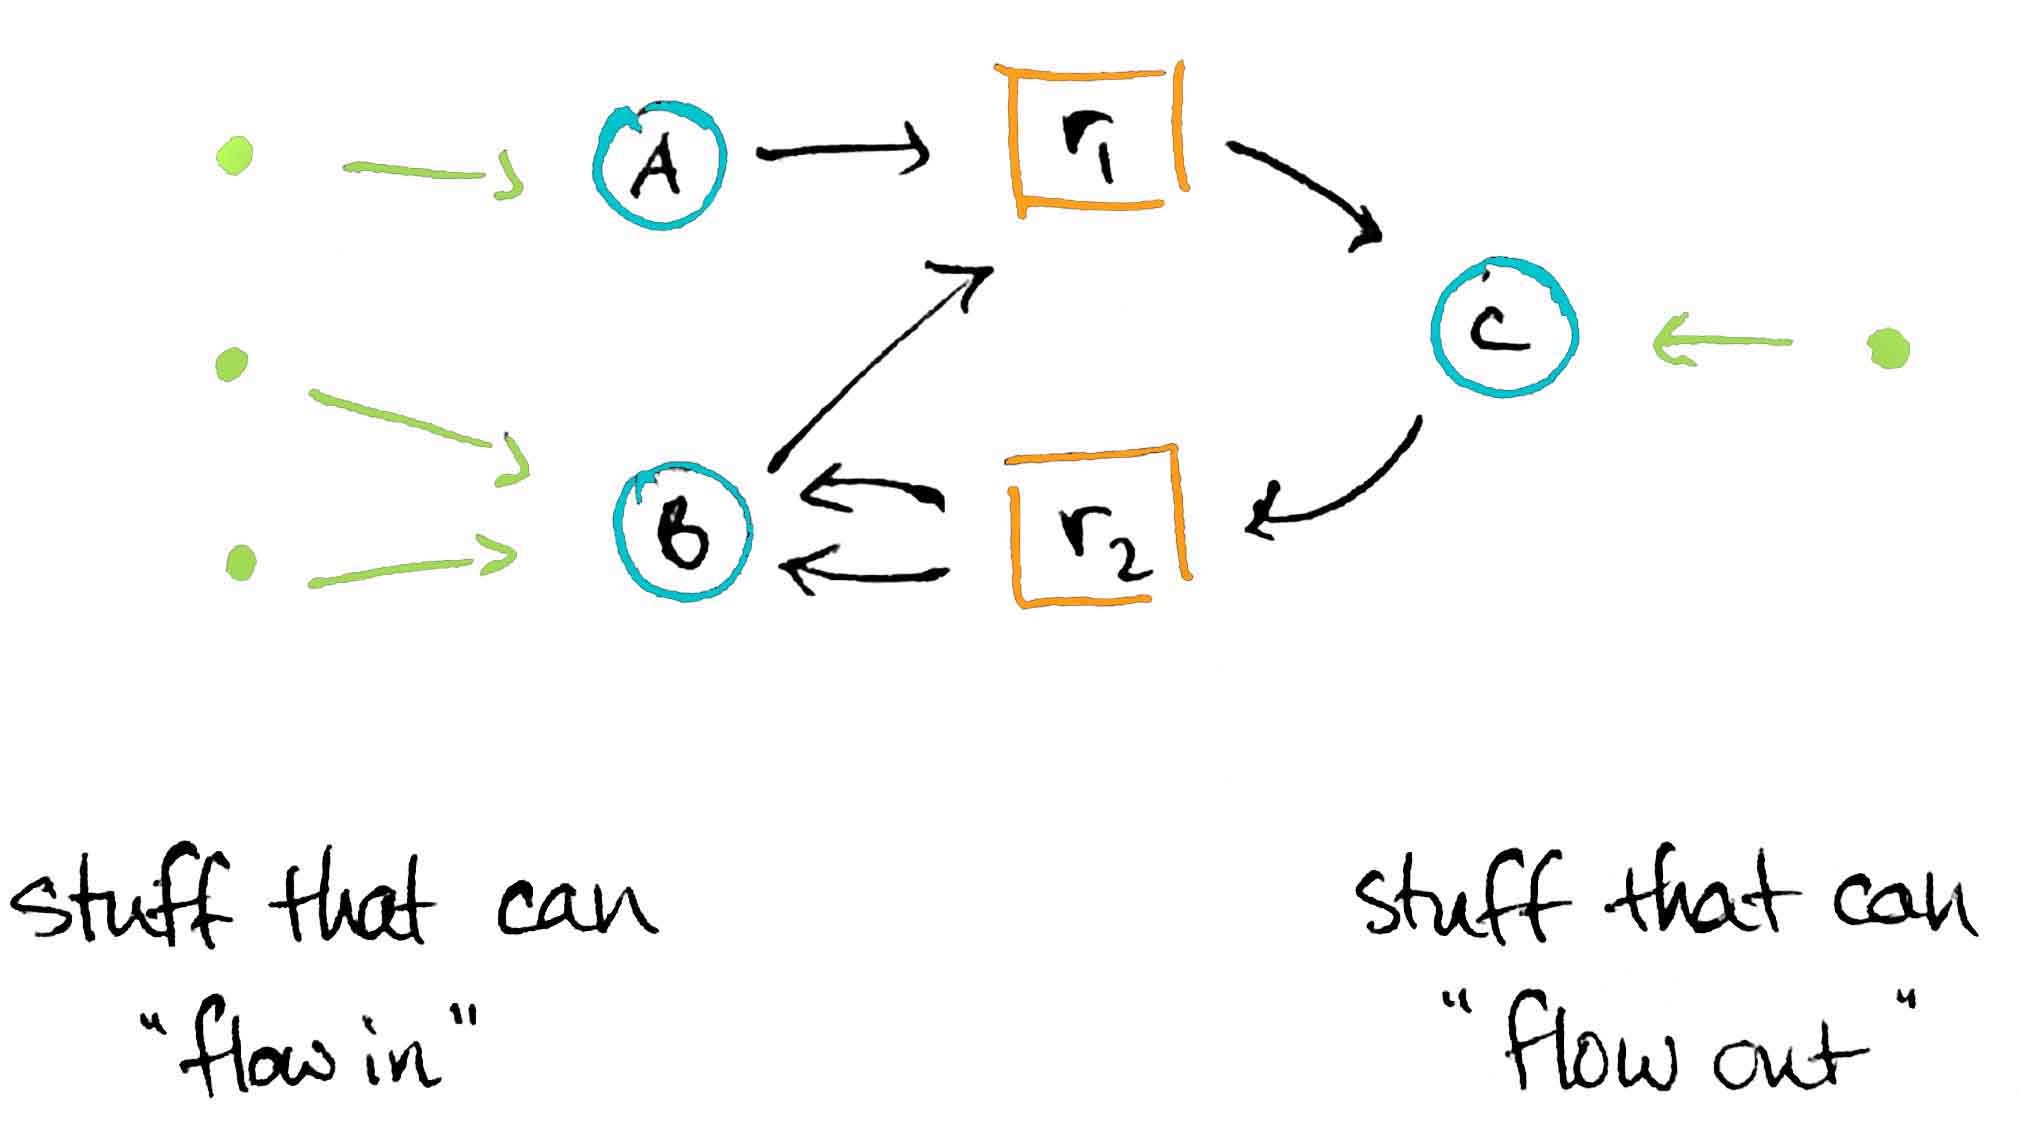 A
r1
C
B
r2
stuff that can
"flow in"
stuff that can
"flow out"